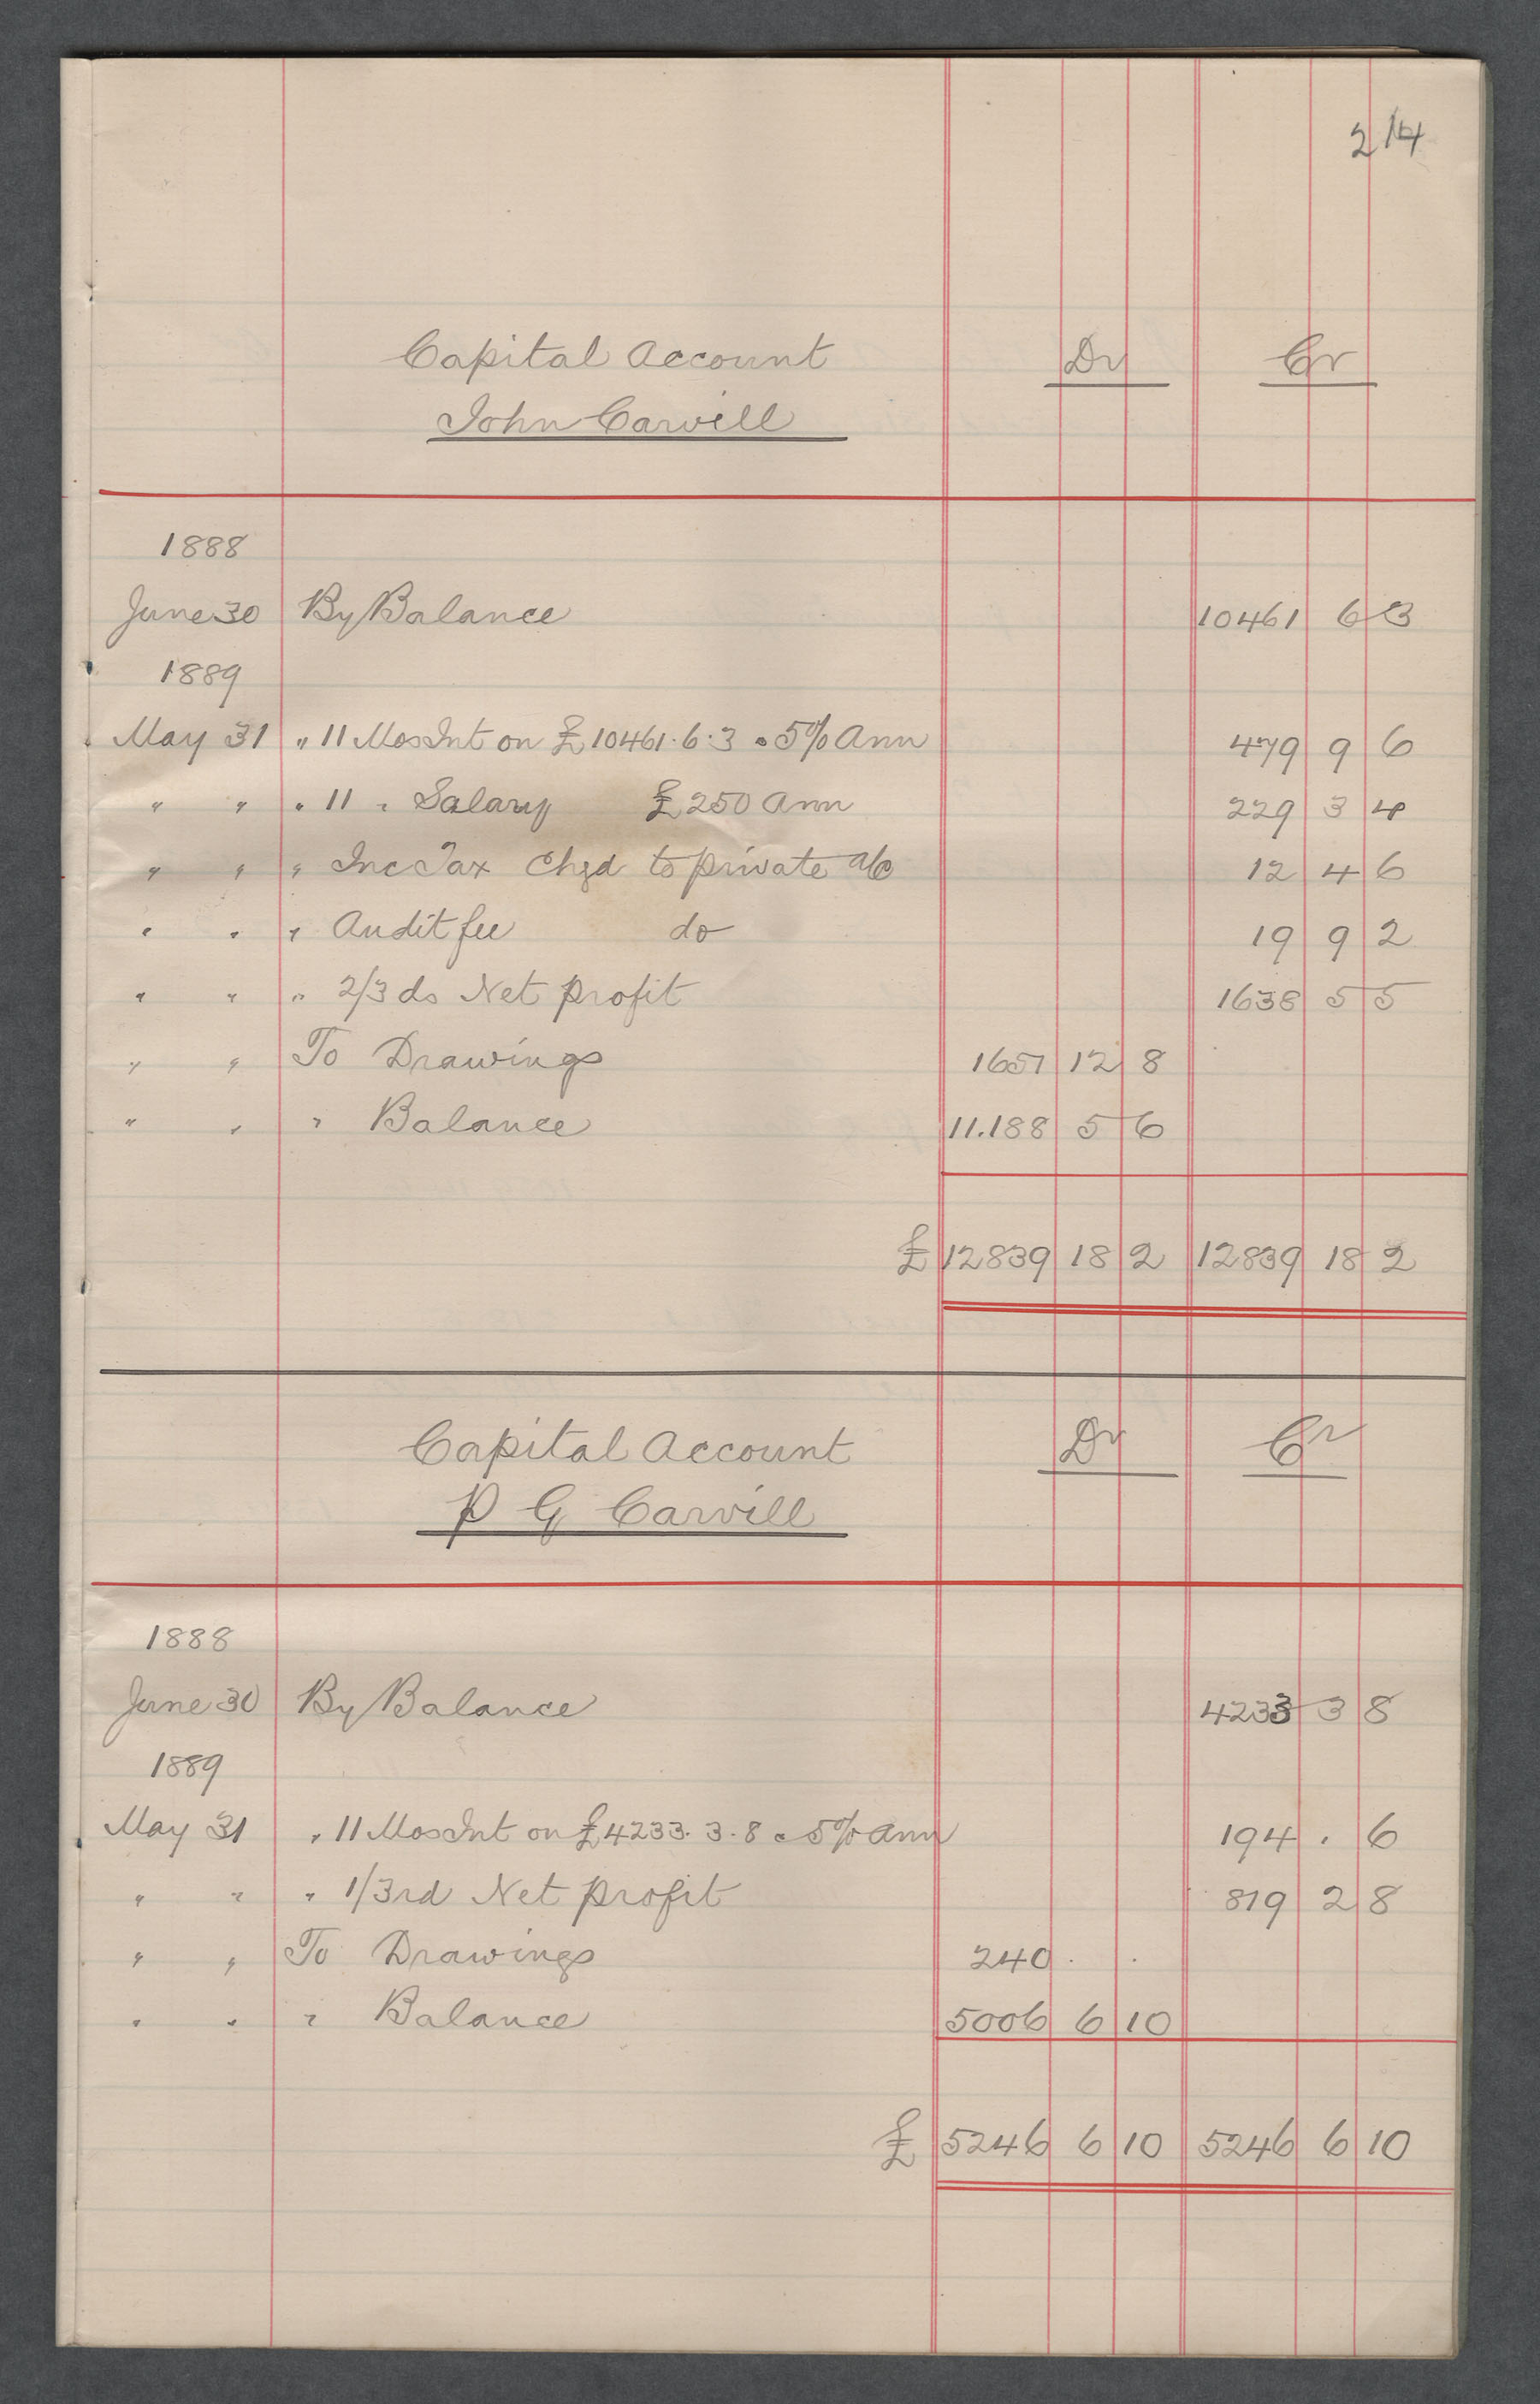 214
Capital Account Dr Cr
John Carvill
1888
June 30 By Balance 10461 6 3
1889
May 31 " 11 Mos Int on £10461.6.3 @ 5% Ann 479 9 6
" " " 11 " Salary £250 Ann 229 3 4
" " " Inc Tax Chgd to private a/c 12 4 6
" " " Audit fee do 19 9 2
" " " 2/3ds Net profit 1638 5 5
" " To Drawings 1651 12 8
" " " Balance 11.188 5 6
£ 12839 18 2 12839 18 2
Capital Account Dr Cr
P G Carvill
1888
June 30 By Balance 4233 3 8
1889
May 31 " 11 Mos Int on £4233.3.8 @ 5% Ann 194 . 6
" " " 1/3rd Net profit 819 2 8
" " To Drawings 240 . .
" " " Balance 5006 6 10
£ 5246 6 10 5246 6 10